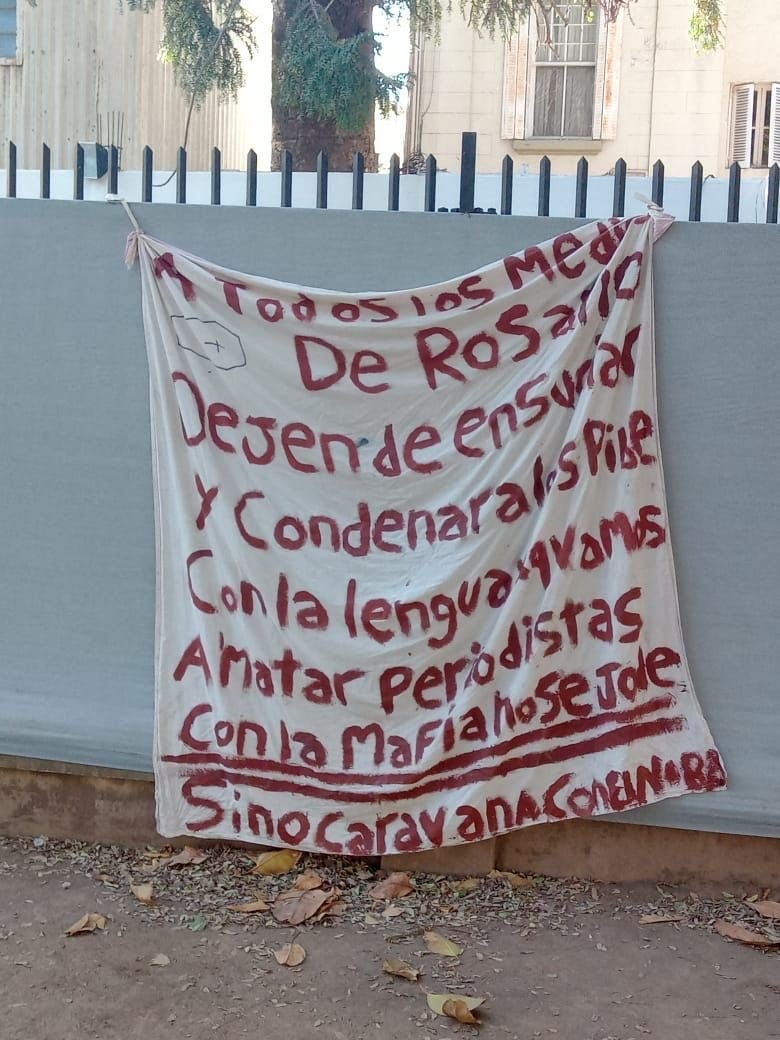 A Todos los Medi
De Rosario
Dejen de ensuciar
y Condenar a los Pibe
Con la lengua qvamos
A Matar periodistas
Con la Mafia no se Jode
Sino caravana Con